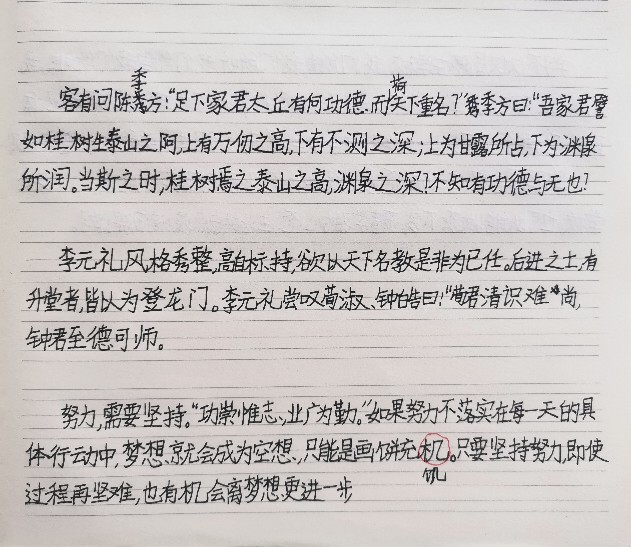 季 荷
客有问陈方:“足下家君太丘有何功德.而天下重名?”季方曰:“吾家君譬
如桂树生泰山之阿,上有万仞之高,下有不测之深;上为甘露所占,下为渊泉
所润。当斯之时,桂树焉之泰山之高,渊泉之深?不知有功德与无也?
李元礼风格秀整,高自标持,欲以天下名教是非为已任。后进之士,有
升堂者,皆以为登龙门。李元礼尝叹荀淑、钟皓曰:“荀君清识难尚,
钟君至德可师。
努力,需要坚持。“功崇惟志,业广为勤。”如果努力不落实在每一天的具
体行动中,梦想就会成为空想,只能是画饼充机。只要坚持努力,即使
饥
过程再坚难,也有机会离梦想更进一步